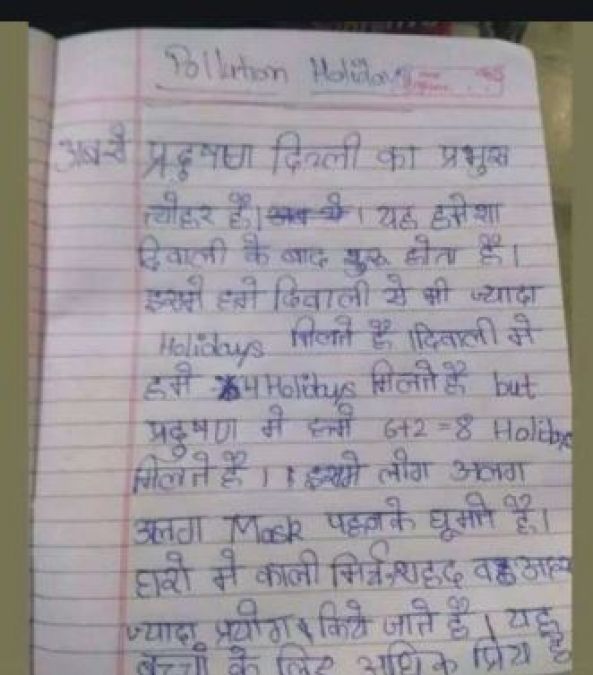 Pollution Holidays
अबसे प्रदुषण दिल्ली का प्रमुख
त्योहर है। अब से। यह हमेशा
दिवाली के बाद शुरू होता है।
इसमे हमे दिवाली से भी ज्यादा
Holidays मिलते है। दिवाली मे
हमे 4 Holidays मिलते है but
प्रदुषण मे हमे 6+2=8 Holidays
मिलते है।। इसमे लोग अलग
अलग Mask पहनके घूमते है।
घरो मे काली मिर्च, शहद व
ज्यादा प्रयोग किये जाते है। यह
बच्चों के लिए अधिक प्रिय है